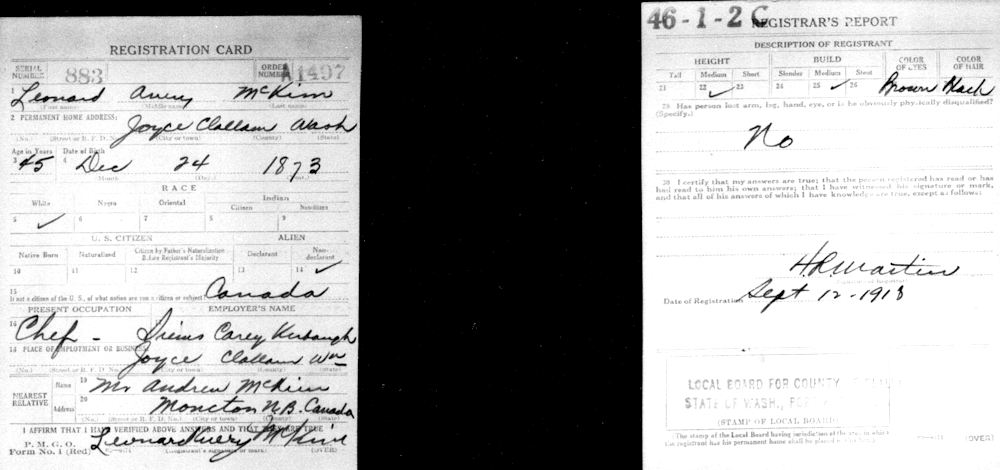 REGISTRATION CARD
SERIAL NUMBER 883 ORDER NUMBER A1497
1 Leonard Avery McKim
(First name) (Middle name) (Last name)
2 PERMANENT HOME ADDRESS:
Joyce Clallam Wash
(No.) (Street or R. F. D. No.) (City or town) (County) (State)
Age in Years Date of Birth
3 45 4 Dec 24 1873
Month (Day)
RACE
White Negro Oriental Indian
Citizen Noncitizen
5 ✓ 6 7 8 9
U. S. CITIZEN ALIEN
Native Born Naturalized Citizen by Father's Naturalization Before Registrant's Majority Declarant Non-declarant
10 11 12 13 14 ✓
15
If not a citizen of the U. S., of what nation are you a citizen or subject? Canada
PRESENT OCCUPATION EMPLOYER'S NAME
16 Chef - Siems Carey Kerbaugh
18 PLACE OF EMPLOYMENT OR BUSINESS
Joyce Clallam Wn
(No.) (Street or R. F. D. No.) (City or town) (County) (State)
NEAREST RELATIVE
Name 19 Mr Andrew McKim
Address 20 Moncton N.B. Canada
(No.) (Street or R. F. D. No.) (City or town) (County) (State)
I AFFIRM THAT I HAVE VERIFIED ABOVE ANSWERS AND THAT THEY ARE TRUE
P. M. G. O.
Form No. 1 (Red) Leonard Avery McKim
(Registrant's signature or mark) (OVER)
46-1-2 C REGISTRAR'S REPORT
DESCRIPTION OF REGISTRANT
HEIGHT BUILD COLOR OF EYES COLOR OF HAIR
Tall Medium Short Slender Medium Stout
21 22 ✓ 23 24 25 ✓ 26 Brown Black
29 Has person lost arm, leg, hand, eye, or is he obviously physically disqualified?
(Specify.)
No
30 I certify that my answers are true; that the person registered has read or has
had read to him his own answers; that I have witnessed his signature or mark,
and that all of his answers of which I have knowledge are true, except as follows:
H.R. Martin
Date of Registration Sept 12-1918
LOCAL BOARD FOR COUNTY
STATE OF WASH.,
(STAMP OF LOCAL BOARD)
(The stamp of the Local Board having jurisdiction of the area in which
the registrant has his permanent home shall be placed
(OVER)